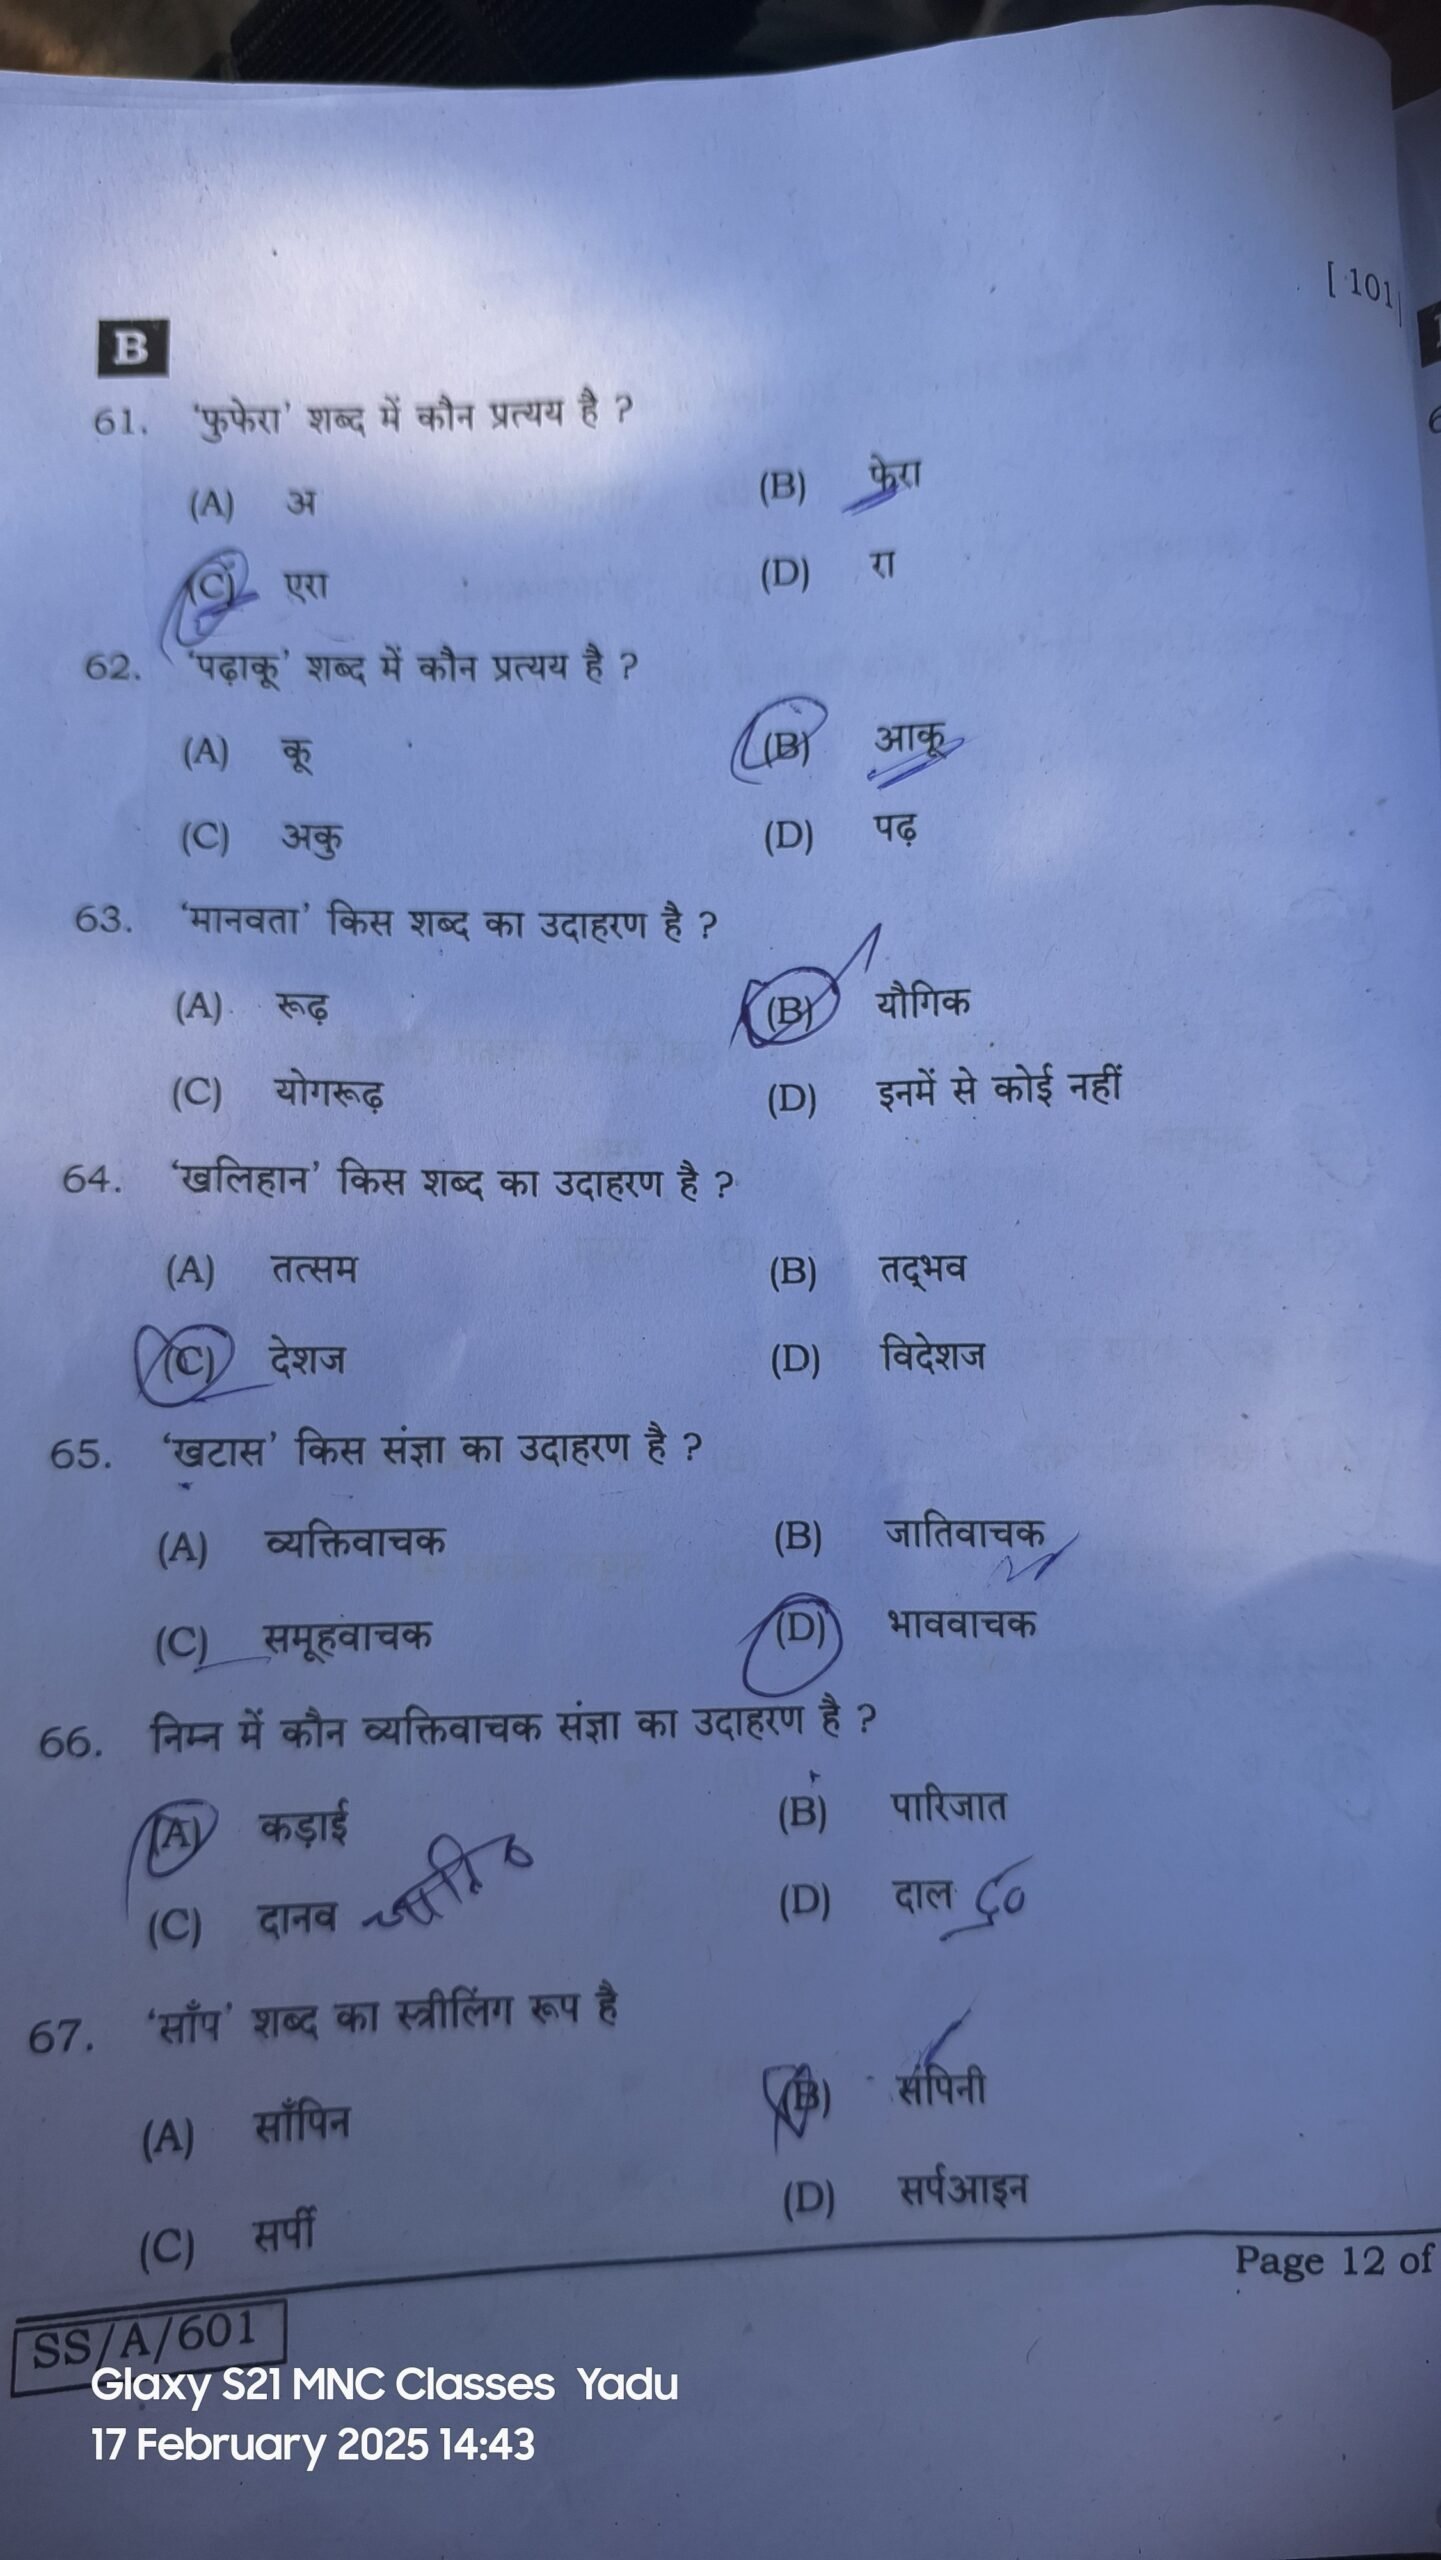 [ 101
B
61. ‘फुफेरा’ शब्द में कौन प्रत्यय है ?
(A) अ (B) फेरा
(C) एरा (D) रा
62. ‘पढ़ाकू’ शब्द में कौन प्रत्यय है ?
(A) कू (B) आकू
(C) अकु (D) पढ़
63. ‘मानवता’ किस शब्द का उदाहरण है ?
(A) रूढ़ (B) यौगिक
(C) योगरूढ़ (D) इनमें से कोई नहीं
64. ‘खलिहान’ किस शब्द का उदाहरण है ?
(A) तत्सम (B) तद्भव
(C) देशज (D) विदेशज
65. ‘खटास’ किस संज्ञा का उदाहरण है ?
(A) व्यक्तिवाचक (B) जातिवाचक
(C) समूहवाचक (D) भाववाचक
66. निम्न में कौन व्यक्तिवाचक संज्ञा का उदाहरण है ?
(A) कड़ाई (B) पारिजात
(C) दानव (D) दाल
67. ‘साँप’ शब्द का स्त्रीलिंग रूप है
(A) साँपिन (B) संपिनी
(C) सर्पी (D) सर्पआइन
Page 12 of
SS/A/601
Glaxy S21 MNC Classes Yadu
17 February 2025 14:43